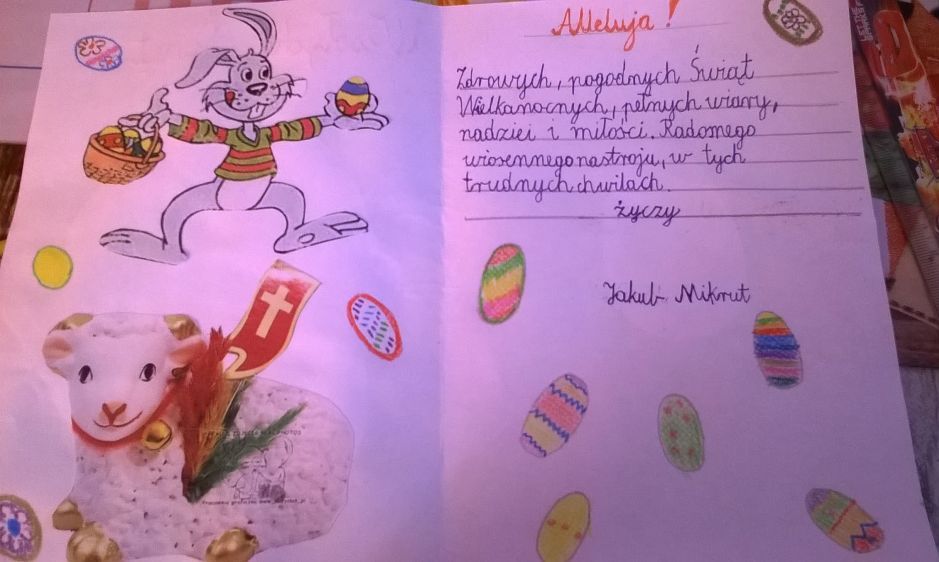 Alleluja!
Zdrowych, pogodnych Świąt
Wielkanocnych, pełnych wiary,
nadziei i miłości. Radosnego
wiosennego nastroju, w tych
trudnych chwilach.
życzy
Jakub Mikrut